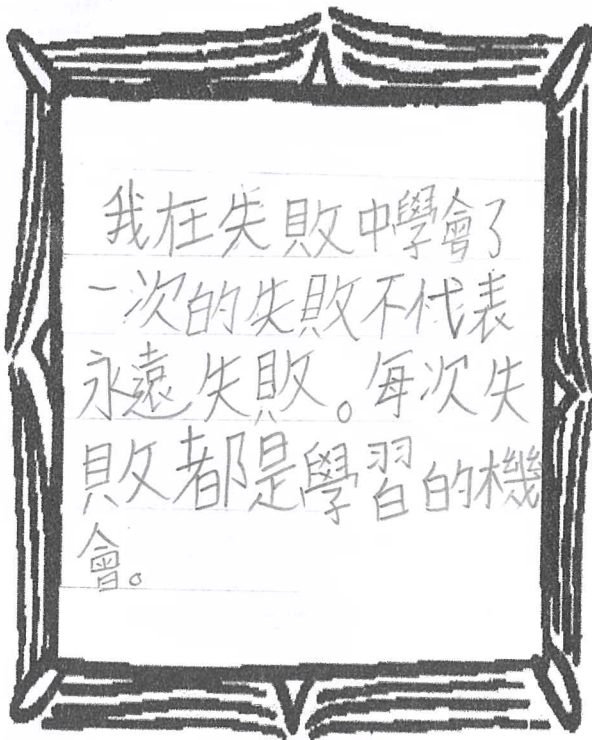 我在失敗中學會了
一次的失敗不代表
永遠失敗。每次失
敗都是學習的機
會。